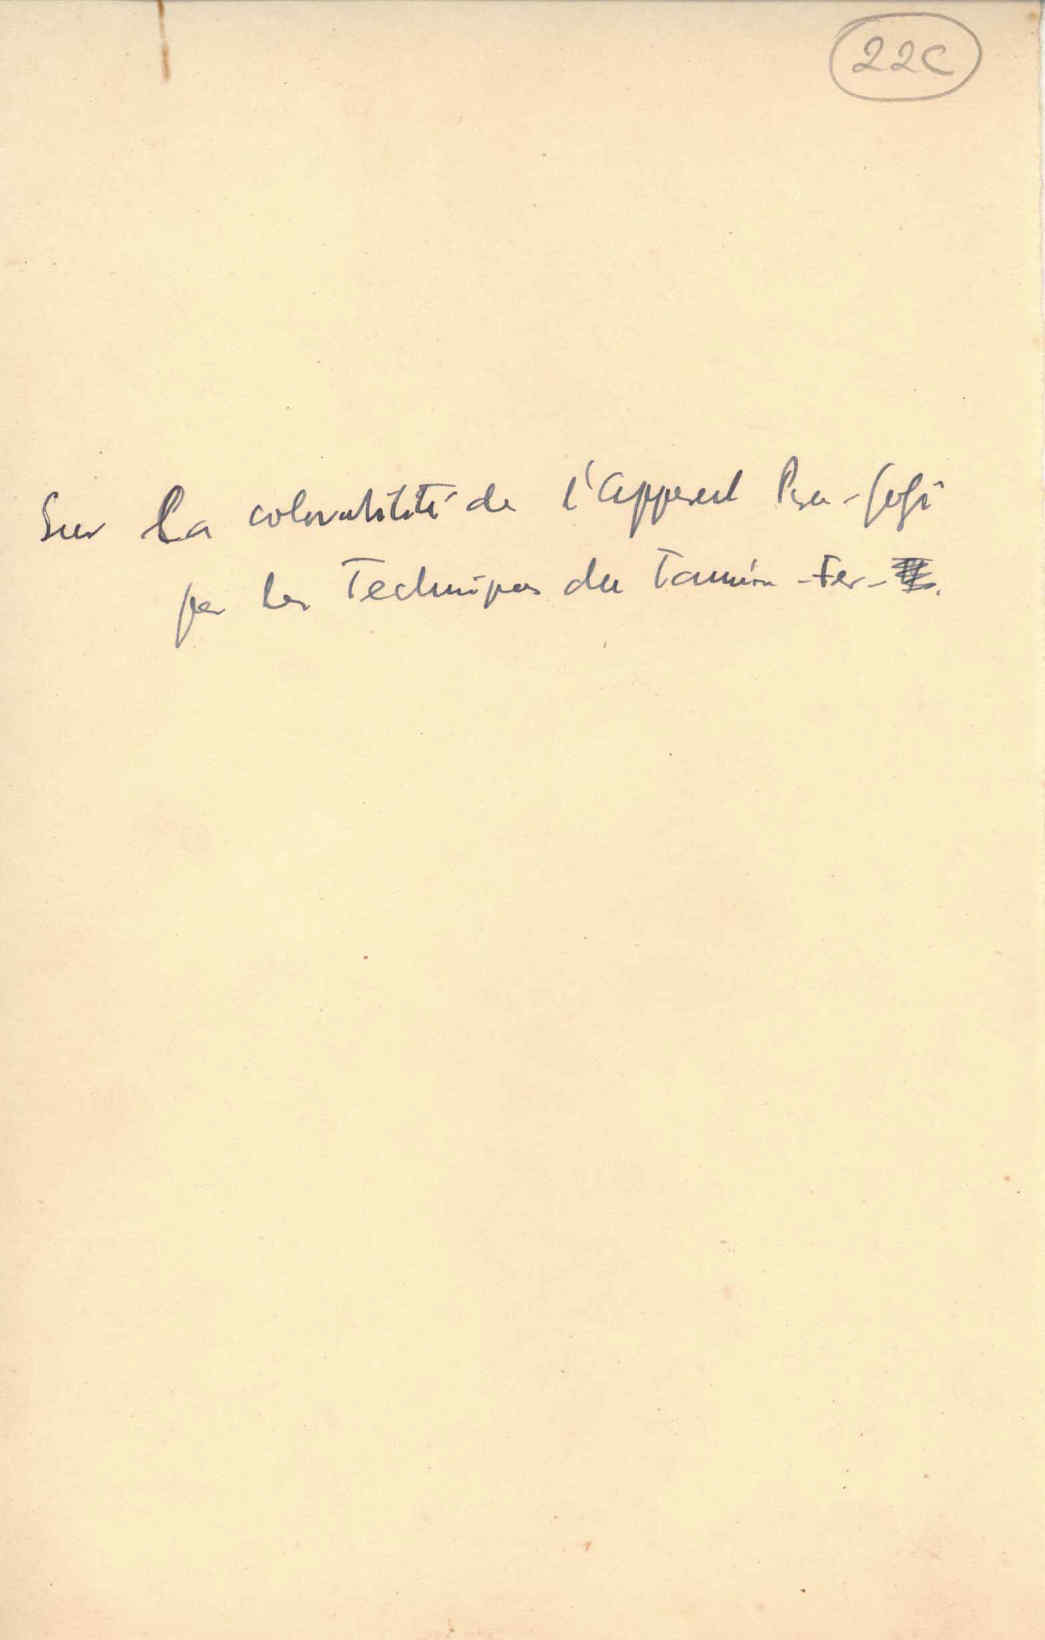 22C
Sur la colorabilité de l'appareil Para-Golgi
par les Techniques du Tannin-Fer-